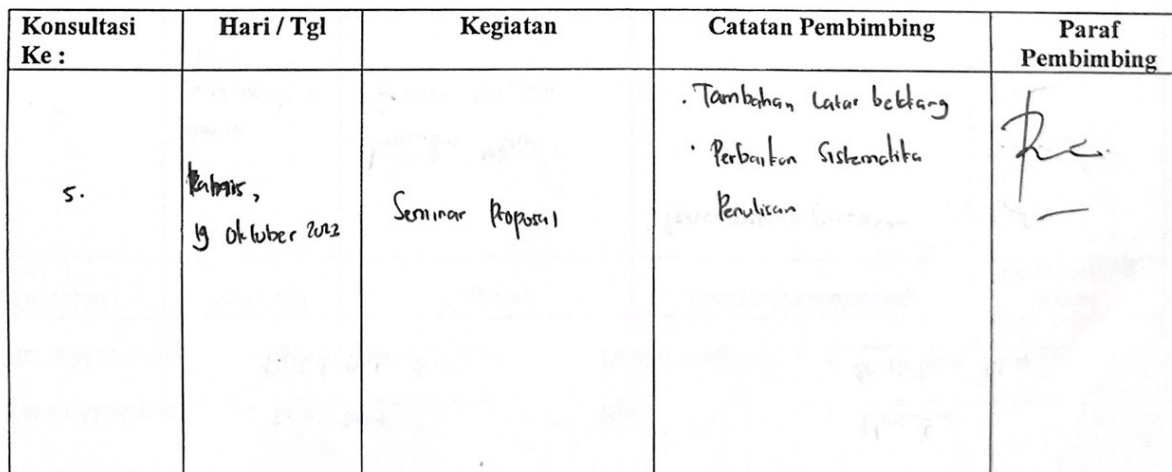 Konsultasi Ke :
Hari / Tgl
Kegiatan
Catatan Pembimbing
Paraf Pembimbing
5.
19 Oktober 2022
Seminar Proposal
· Tambahan Latar belakang
· Perbaikan Sistematika
Penulisan